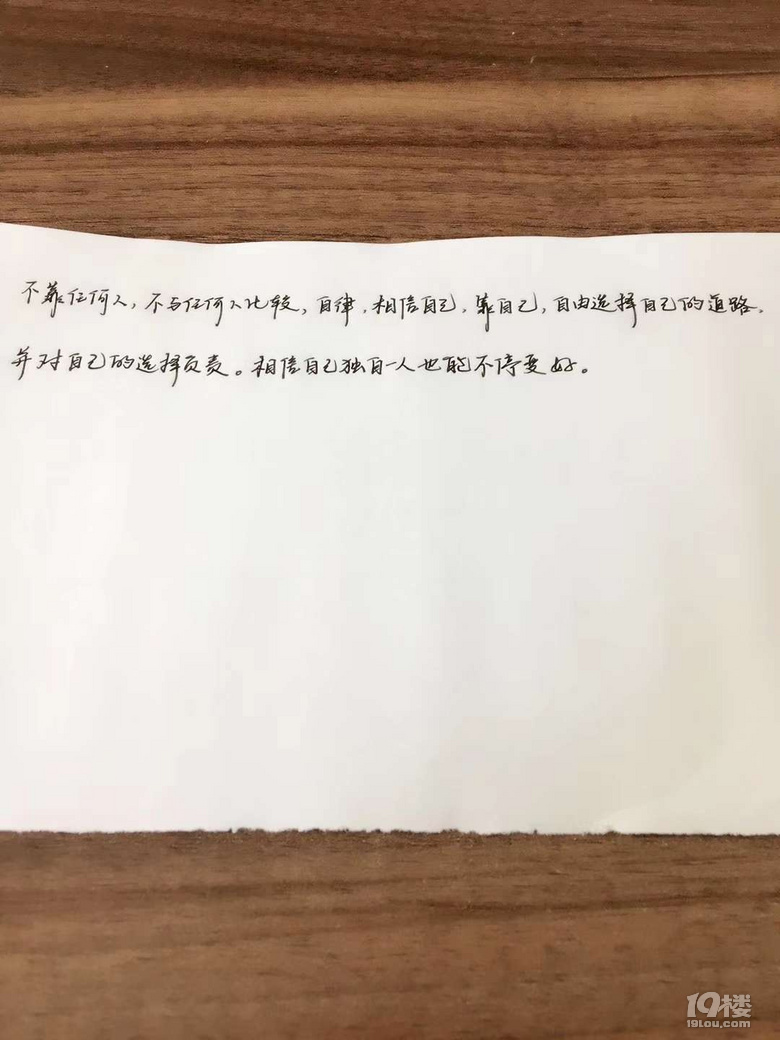 不靠任何人，不与任何人比较，自律，相信自己，靠自己，自由选择自己的道路，
并对自己的选择负责。相信自己独自一人也能不停变好。
19楼
19lou.com